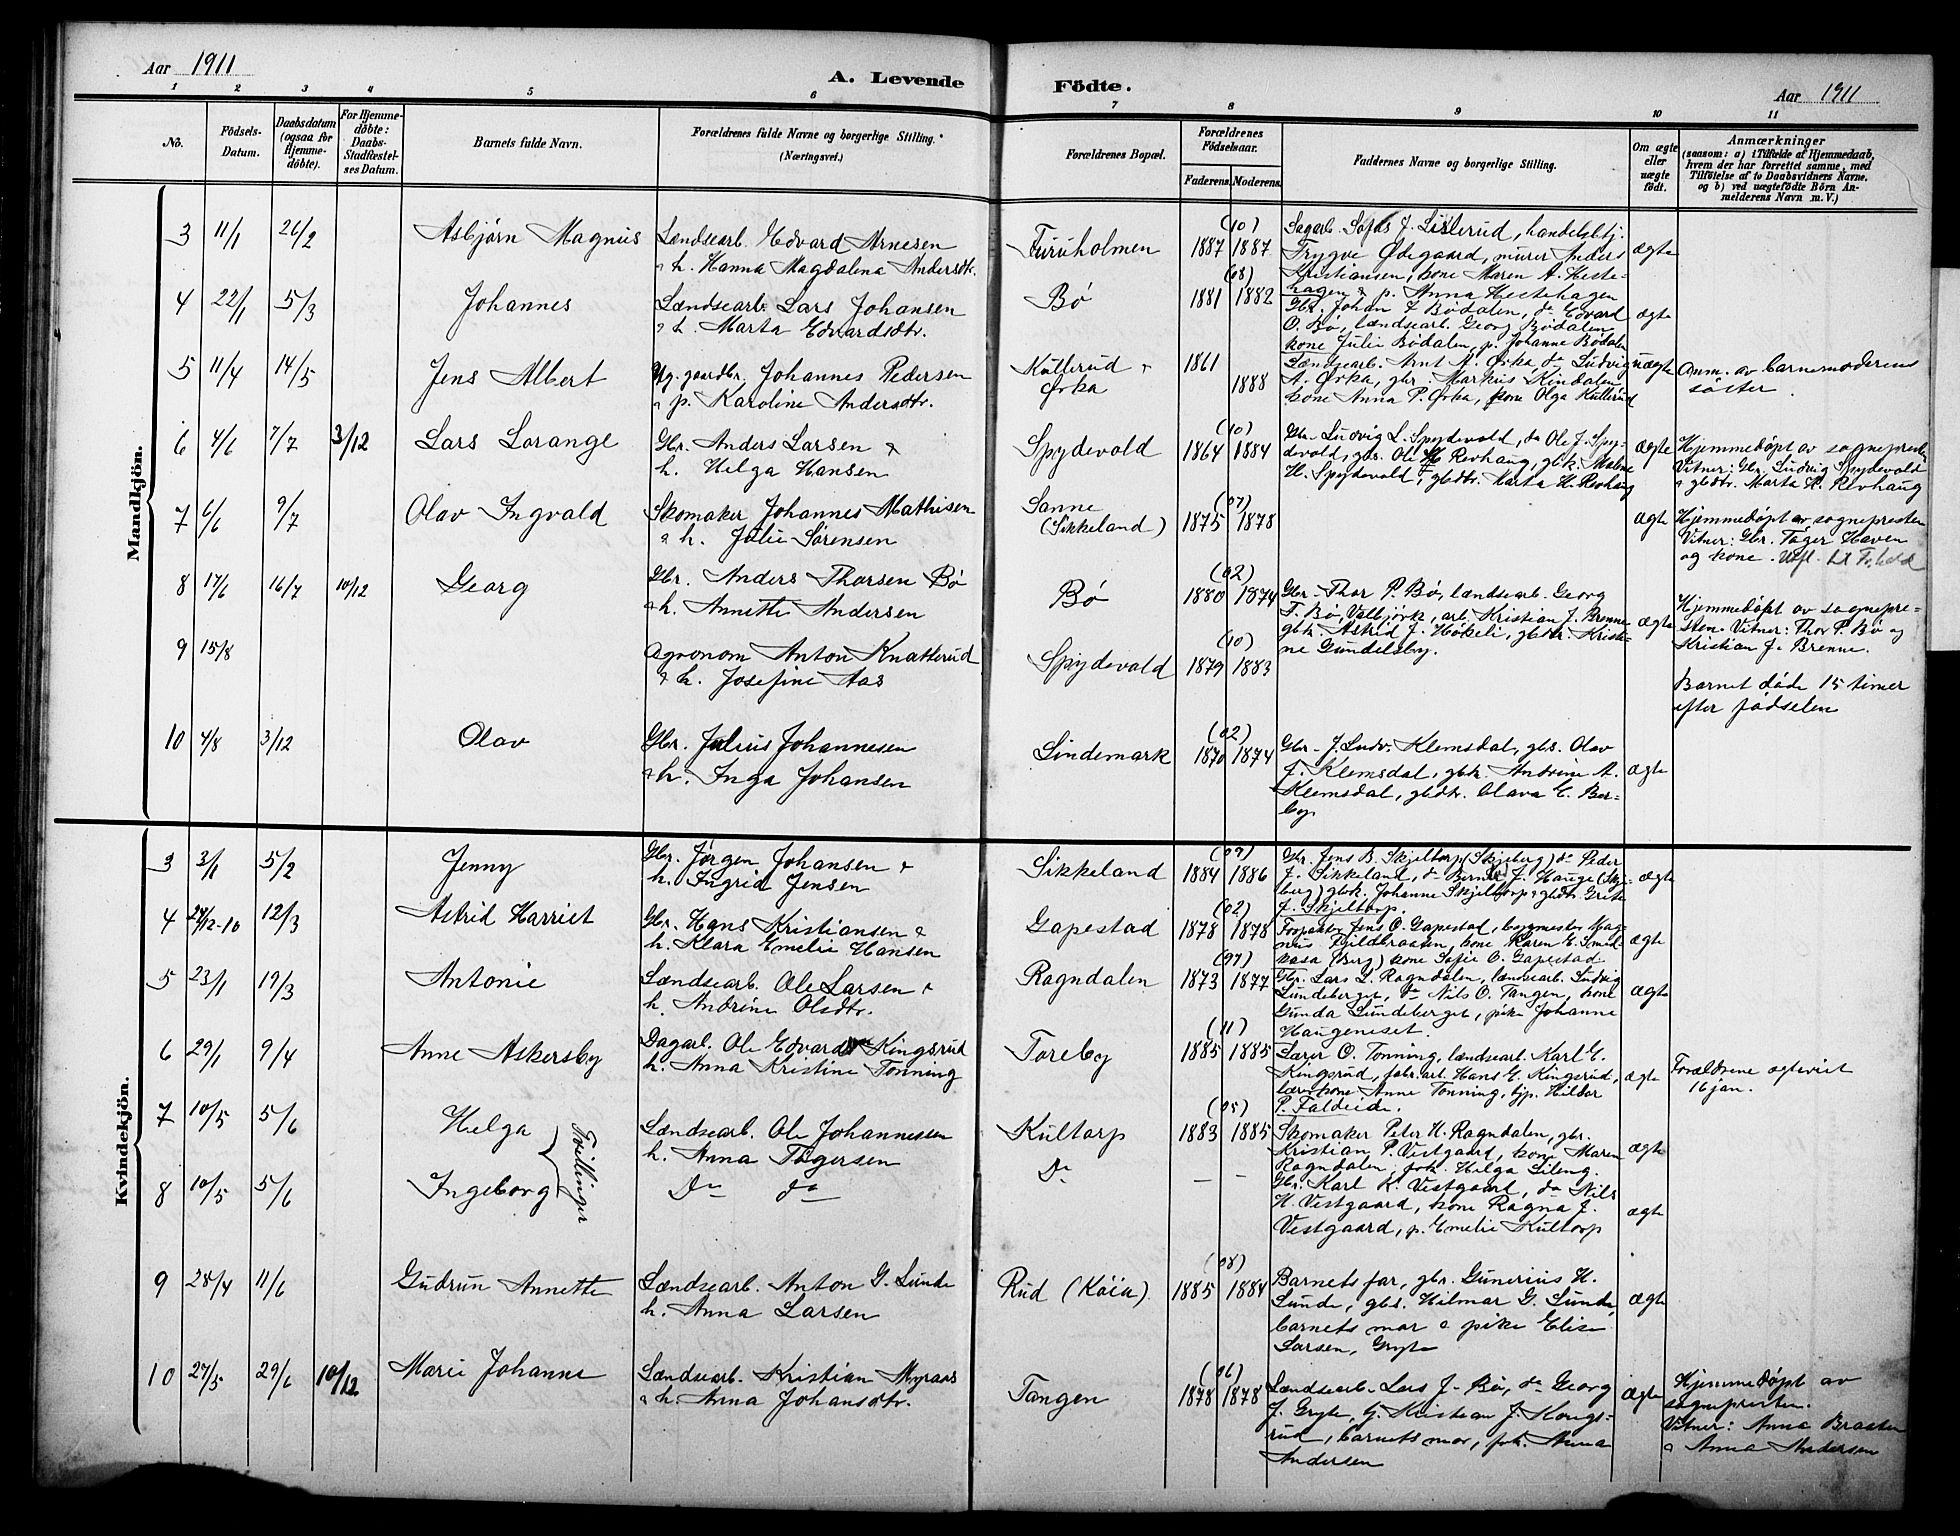 Aar 1911
A. Levende
Födte.
Aar 1911
1 2 3 4 5 6 7 8 9 10 11
No.
Födsels-Datum.
Daabsdatum (ogsaa for Hjemme-döbte).
For Hjemme-döbte: Daabs-Stadfæstel-ses Datum.
Barnets fulde Navn.
Forældrenes fulde Navne og borgerlige Stilling. (Næringsvei.)
Forældrenes Bopæl.
Forældrenes Födselsaar.
Faderens. Moderens.
Faddernes Navne og borgerlige Stilling.
Om ægte eller uægte födt.
Anmærkninger
(saasom: a) i Tilfælde af Hjemmedaab,
hvem der har forrettet samme, med
Tilföielse af to Daabsvidners Navne,
og b) ved uægtefödte Börn An-
melderens Navn m. V.)
Mandkjön.
3 11/1 26/2 Asbjørn Magnus
Lændsearb. Edvard Arnesen
& h. Hanna Magdalena Andersdtr.
Furuholmen
(10)
1887 1887
Sagarb. Sofus J. Listerud, handelsbtj.
Trygve Ødegaard, murer Anders
Kristiansen, kone Maren A. Heste-
hagen & p. Anna Hestehagen
ægte
4 22/1 5/3 Johannes
Lændsearb. Lars Johansen
& h. Marta Edvardsdtr.
Bø
(08)
1881 1882
Gbr. Johan J Bødalen, do Edvard
O. Bø, lændsearb. Georg Bødalen
kone Julie Bødalen, p. Johanne Bødalen
ægte
5 11/4 14/5 Jens Albert
Ug. gaardbr. Johannes Pedersen
& p. Karoline Andersdtr.
Kullerud &
Ørka
1861
1888
Lændsearb. Arnt A. Ørka, do Ludvig
A. Ørka, gbr. Markus Kindalen,
kone Anna P. Ørka, kone Olga Kullerud
uægte
Anm. av barnemoderens
søster.
6 4/6 7/7 3/12 Lars Lorange
Gbr. Anders Larsen &
h. Helga Hansen
Spydevold
(10)
1864 1884
Gbr. Ludvig L. Spydevold, do Ole J. Spy-
devold, gbs. Ole H Revhaug, gbk. Malene
H. Spydevold, gbdtr. Marta H. Revhaug
ægte
Hjemmedøpt av sognepresten
Vitner: Gbr. Ludvig Spydevold
& gbdtr. Marta H. Revhaug
7 6/6 9/7 Olav Ingvald
Skomaker Johannes Mathisen
& h. Julie Sørensen
Sanne
(Sikkeland)
(07)
1875 1878
ægte
Hjemmedøpt av sognepresten
Vitner: Gbr. Tøger Haven
og kone. Utfl. til
8 17/6 16/7 10/12 Georg
Gbr. Anders Thorsen Bø
& h. Annette Andersen
Bø
(02)
1880 1874
Gbr. Thor P. Bø, lændsearb. Georg
T. Bø, Valbjørke, arb. Kristian J. Brenne
gbk. Astrid J. Høkeli, gbdtr. Kristi-
ne Gundelsby.
ægte
Hjemmedøpt av sognepre-
sten. Vitner: Thor P. Bø og
Kristian J. Brenne.
9 15/8
Agronom Anton Knatterud
& h. Josefine Aas
Spydevold
(10)
1879 1883
Barnet døde 15 timer
efter fødselen
10 4/8 3/12 Olav
Gbr. Julius Johannesen
& h. Inga Johansen
Lindemark
(02)
1870 1874
Gbr. J. Ludv. Klemsdal, gbs. Olav
J. Klemsdal, gbk. Andrine A.
Klemsdal, gbdtr. Olava E. Ber-
by
ægte
Kvindekjön.
3 3/1 5/2 Jenny
Gbr. Jørgen Johansen &
h. Ingrid Jensen
Sikkeland
(09)
1884 1886
Gbr. Jens B. Skjeltorp (Skjeberg) do Peder
J. Sikkeland, do Bernt J. Hauge (Skje-
berg) gbk. Johanne Skjeltorp & gbdtr. Grete
J. Skjeltorp.
ægte
4 24/12-10 12/3 Astrid Harriet
Gbr. Hans Kristiansen &
h. Klara Emelie Hansen
Gapestad
(02)
1878 1878
Forpakter Jens O. Gapestad, bygmester Mag-
nus Fjeldbraaten, kone Karen E. Smed-
kasa (Berg) kone Sofie O. Gapestad
ægte
5 23/1 19/3 Antonie
Lændsearb. Ole Larsen &
h. Andrine Olsdtr.
Ragndalen
(97)
1873 1877
Gbr. Lars L. Ragndalen, lændsearb. Ludvig
Lundeberget, do Nils O. Tangen, kone
Gunda Lundeberget, pike Johanne
Haugeneset.
ægte
6 29/1 9/4 Anne Askersby
Dagarb. Ole Edvard Kingsrud
h. Anna Kristine Tonning
Toreby
(11)
1885 1885
Lærer O. Tonning, lændsearb. Karl E.
Kingsrud, fabr.arb. Hans E. Kingsrud,
lærerkone Anne Tonning, tjp. Hilder
P. Faldeide.
ægte
Forældrene egteviet
16 jan.
7 10/5 5/6 Helga
Tvillinger
Lændsearb. Ole Johannessen
h. Anna Tøgersen
Kultorp
(05)
1883 1885
Skomaker Peter H. Ragndalen, gbr.
Kristian P. Vestgaard, kone Maren
Ragndalen, frk. Helga Lileng.
ægte
8 10/5 5/6 Ingeborg
Do do
Do
— —
Gbr. Karl K. Vestgaard, do Nils
H. Vestgaard, kone Ragna J.
Vestgaard, p. Emelie Kultorp
ægte
9 28/4 11/6 Gudrun Annette
Lændsearb. Anton G. Lunde
h. Anna Larsen
Rud (Køia)
(08)
1885 1884
Barnets far, gbr. Gunerius H.
Lunde, gbs. Hilmar G. Lunde,
barnets mor & pike Elise
Larsen, Gryte
ægte
10 27/5 29/6 10/12 Marie Johanne
Lændsearb. Kristian Myraas
& h. Anna Johansdtr.
Tangen
(06)
1878 1878
Lændsearb. Lars J. Bø, do Georg
J. Gryte, G. Kristian J. Kongs-
rud, barnets mor, frk. Anna
Andersen
ægte
Hjemmedøpt av
sognepresten.
Vitner: Anna Braaten
& Anna Andersen